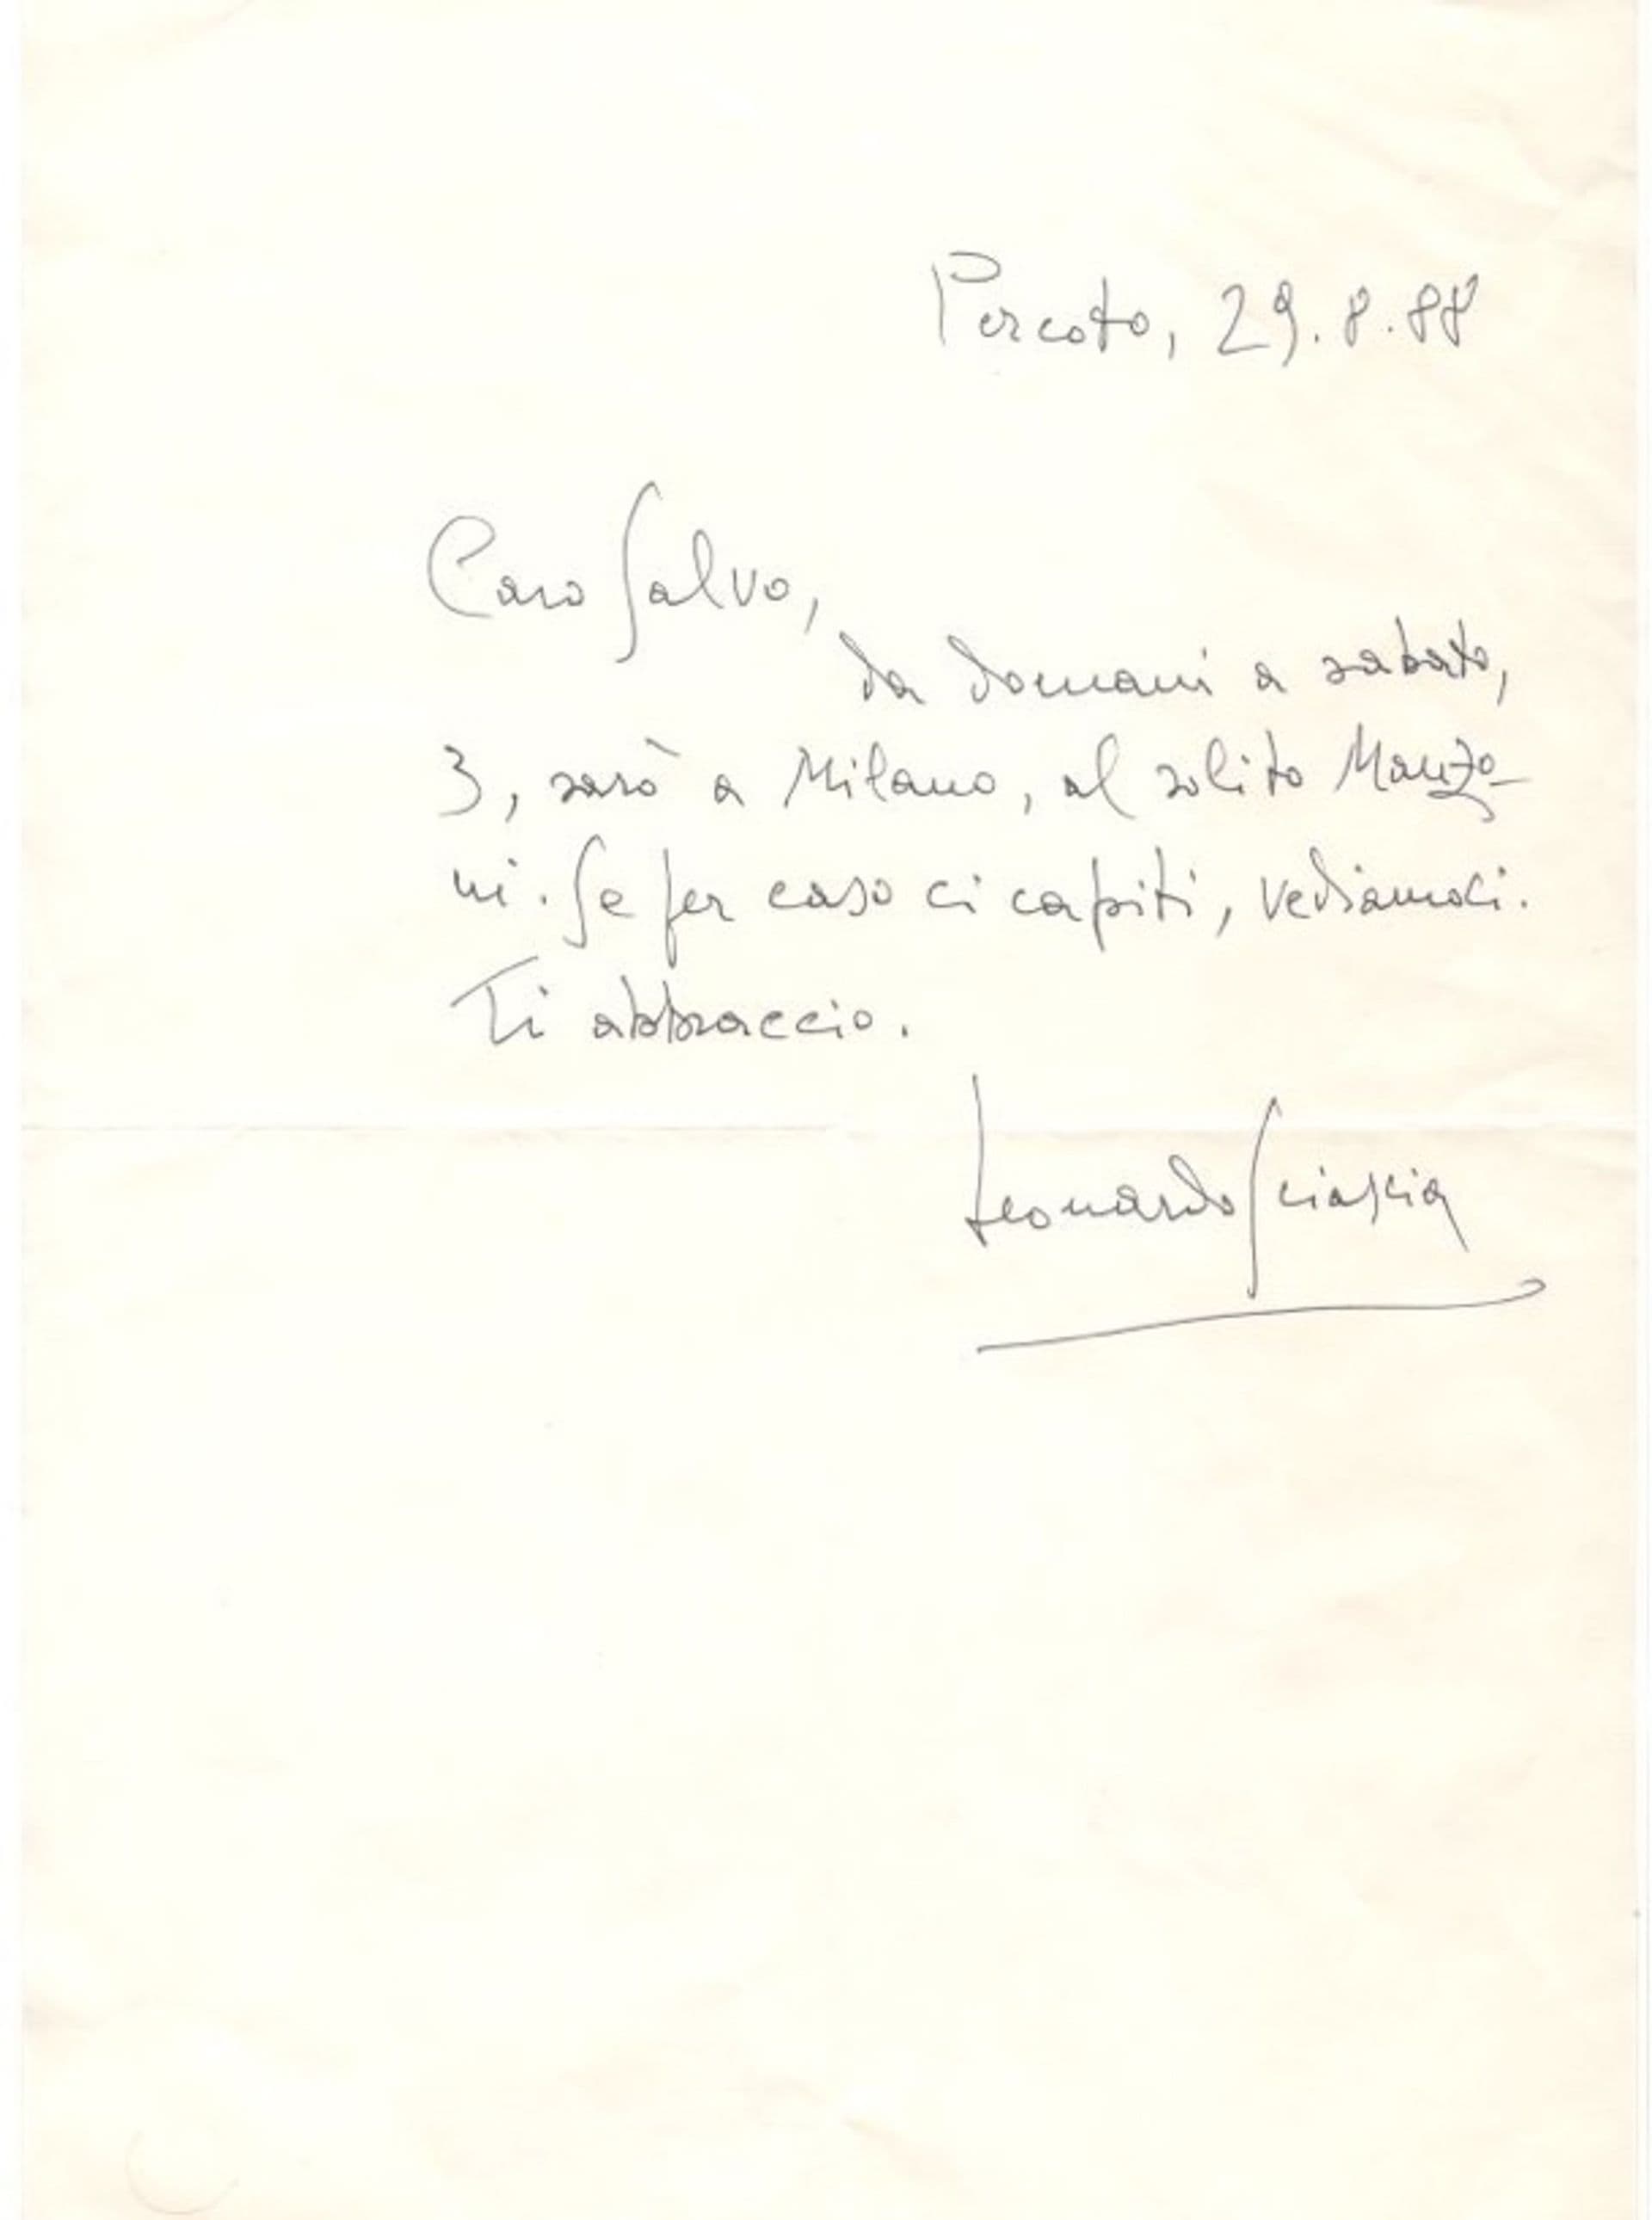 Percoto, 29.8.88
Caro Salvo,
da domani a sabato,
3, sarò a Milano, al solito Manzo-
ni. Se per caso ci capiti, vediamoci.
Ti abbraccio.
Leonardo Sciascia